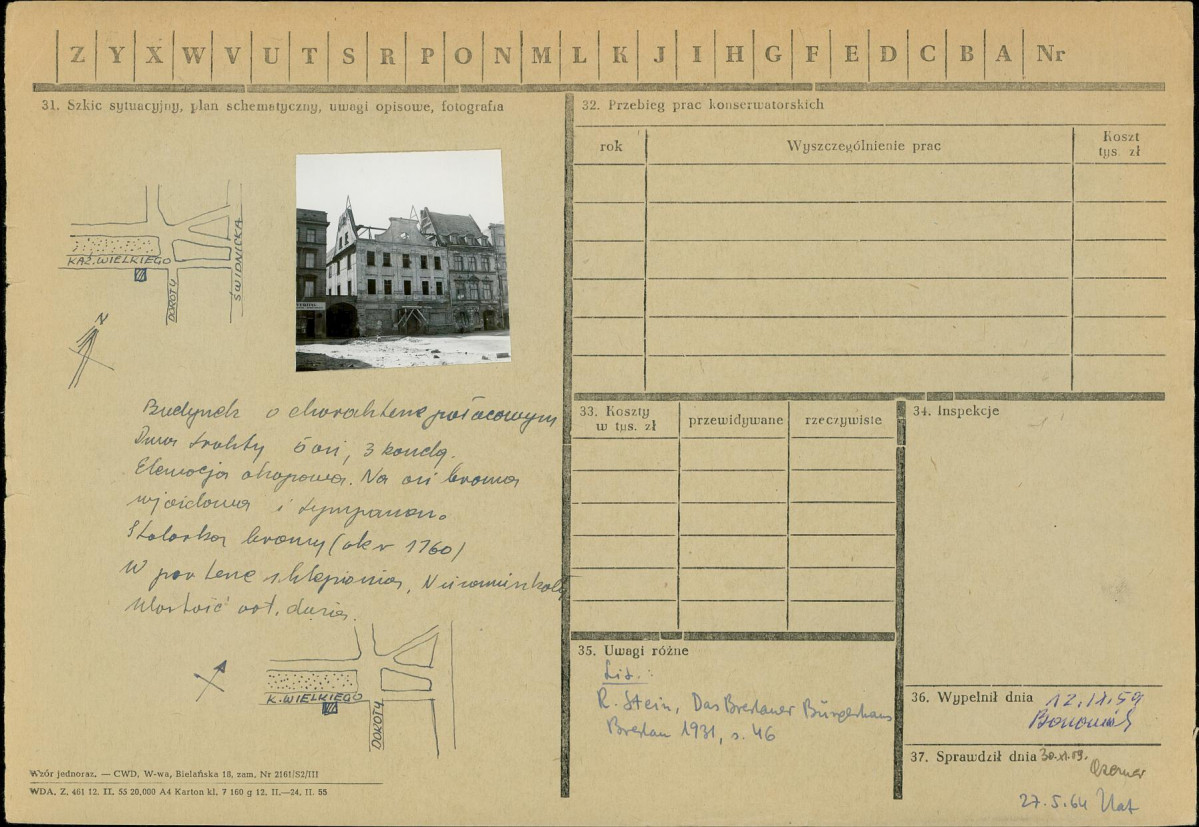 Z Y X W V U T S R P O N M L K J I H G F E D C B A Nr
31. Szkic sytuacyjny, plan schematyczny, uwagi opisowe, fotografia
KAŹ. WIELKIEGO
DOROTY
ŚWIDNICKA
N
Budynek o charakterze pałacowym
Dwa trakty 5 osi, 3 kondg.
Elewacja okapowa. Na osi brama
wjazdowa i tympanon.
Stolarka bramy (ok r 1760)
W parterze sklepienia, Niezamieszkały
Wartość art. duża.
K. WIELKIEGO
DOROTY
Wzór jednoraz. — CWD, W-wa, Bielańska 18, zam. Nr 2161/S2/III
WDA. Z. 461 12. II. 55 20,000 A4 Karton kl. 7 160 g 12. II.—24. II. 55
32. Przebieg prac konserwatorskich
rok
Wyszczególnienie prac
Koszt
tys. zł
33. Koszty
w tys. zł
przewidywane
rzeczywiste
34. Inspekcje
35. Uwagi różne
Lit.:
R. Stein, Das Breslauer Bürgerhaus
Breslau 1931, s. 46
36. Wypełnił dnia 12.11.59
37. Sprawdził dnia 30.XI.59.
27.5.64